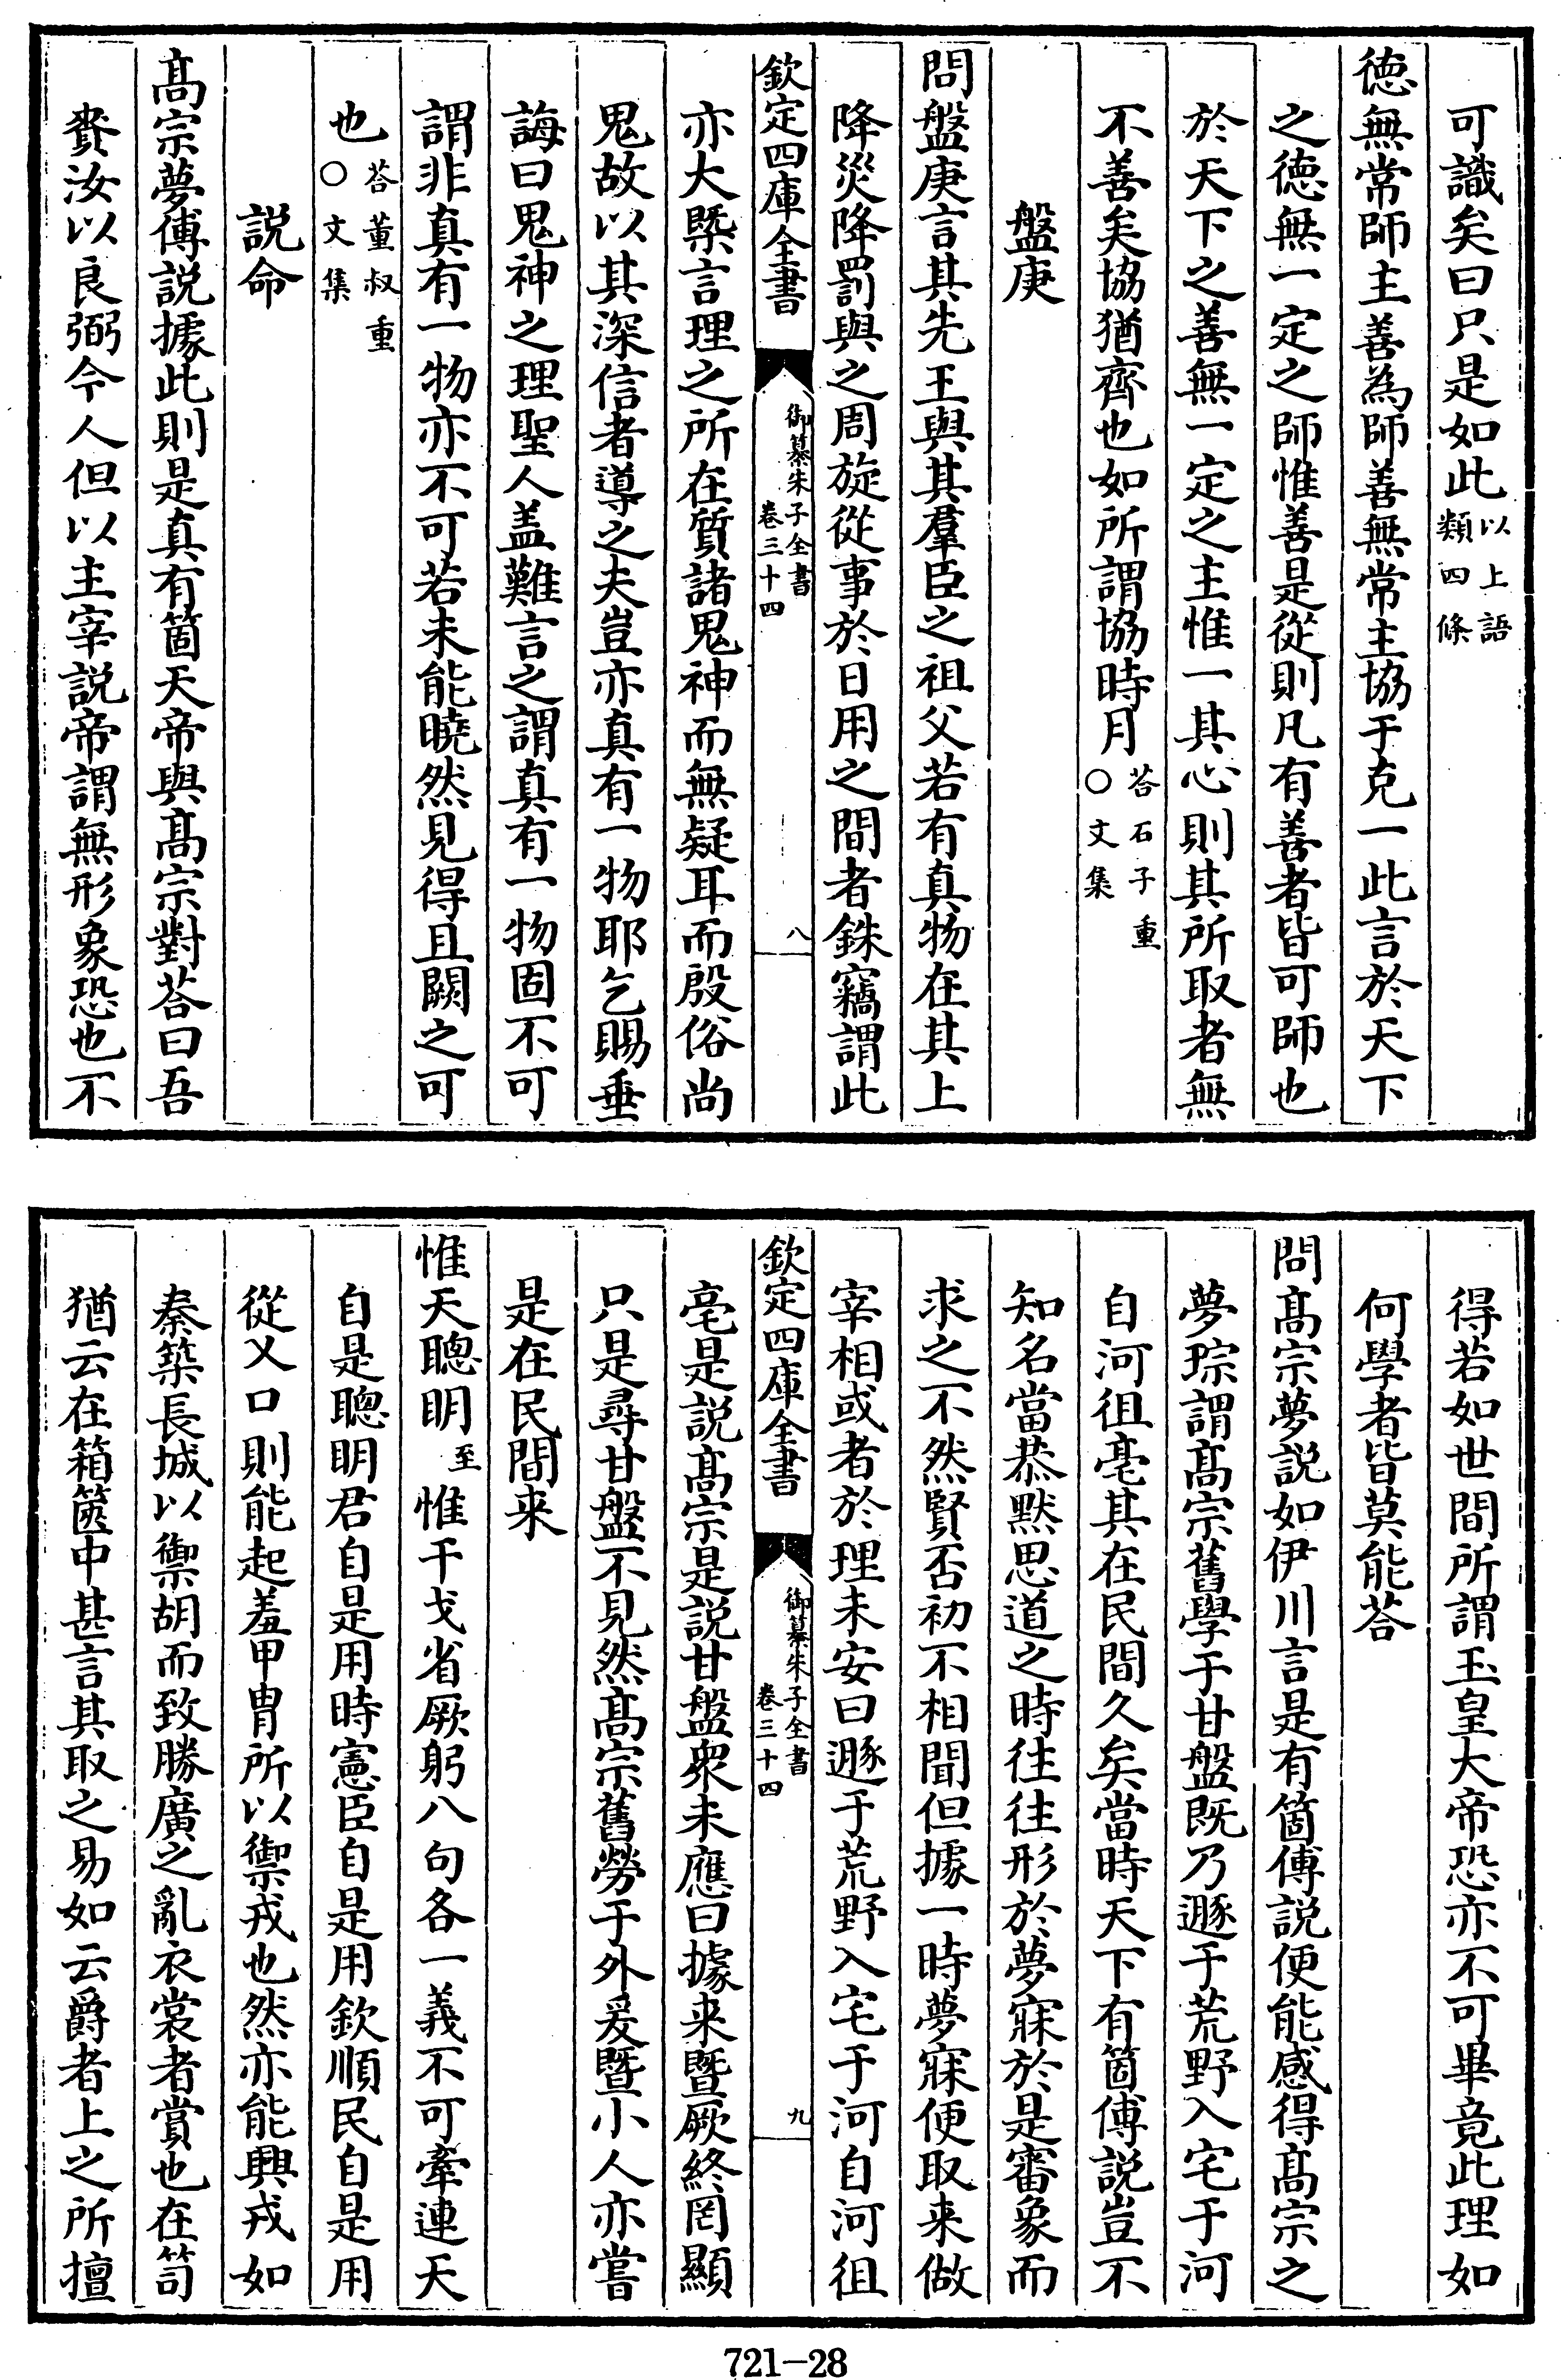 可識矣曰只是如此以上語類四條
徳無常師主善為師善無常主協于克一此言於天下
之徳無一定之師惟善是從則凡有善者皆可師也
於天下之善無一定之主惟一其心則其所取者無
不善矣協猶齊也如所謂協時月荅石子重○文集
盤庚
問盤庚言其先王與其羣臣之祖父若有真物在其上
降災降罰與之周旋從事於日用之間者銖竊謂此
欽定四庫全書 御纂朱子全書 卷三十四 八
亦大槩言理之所在質諸鬼神而無疑耳而殷俗尚
鬼故以其深信者導之夫豈亦真有一物耶乞賜垂
誨曰鬼神之理聖人盖難言之謂真有一物固不可
謂非真有一物亦不可若未能曉然見得且闕之可
也荅董叔重○文集
説命
髙宗夢傅説據此則是真有箇天帝與髙宗對荅曰吾
賚汝以良弼今人但以主宰説帝謂無形象恐也不
得若如世間所謂玉皇大帝恐亦不可畢竟此理如
何學者皆莫能荅
問髙宗夢説如伊川言是有箇傅説便能感得髙宗之
夢琮謂髙宗舊學于甘盤既乃遯于荒野入宅于河
自河徂亳其在民間久矣當時天下有箇傅説豈不
知名當恭黙思道之時往往形於夢寐於是審象而
求之不然賢否初不相聞但據一時夢寐便取来做
宰相或者於理未安曰遯于荒野入宅于河自河徂
欽定四庫全書 御纂朱子全書 卷三十四 九
亳是説髙宗是説甘盤衆未應曰據来暨厥終罔顯
只是尋甘盤不見然髙宗舊勞于外爰暨小人亦嘗
是在民間来
惟天聰明至惟干戈省厥躬八句各一義不可牽連天
自是聰明君自是用時憲臣自是用欽順民自是用
從乂口則能起羞甲胄所以禦戎也然亦能興戎如
秦築長城以禦胡而致勝廣之亂衣裳者賞也在笥
猶云在箱篋中甚言其取之易如云爵者上之所擅
721-28